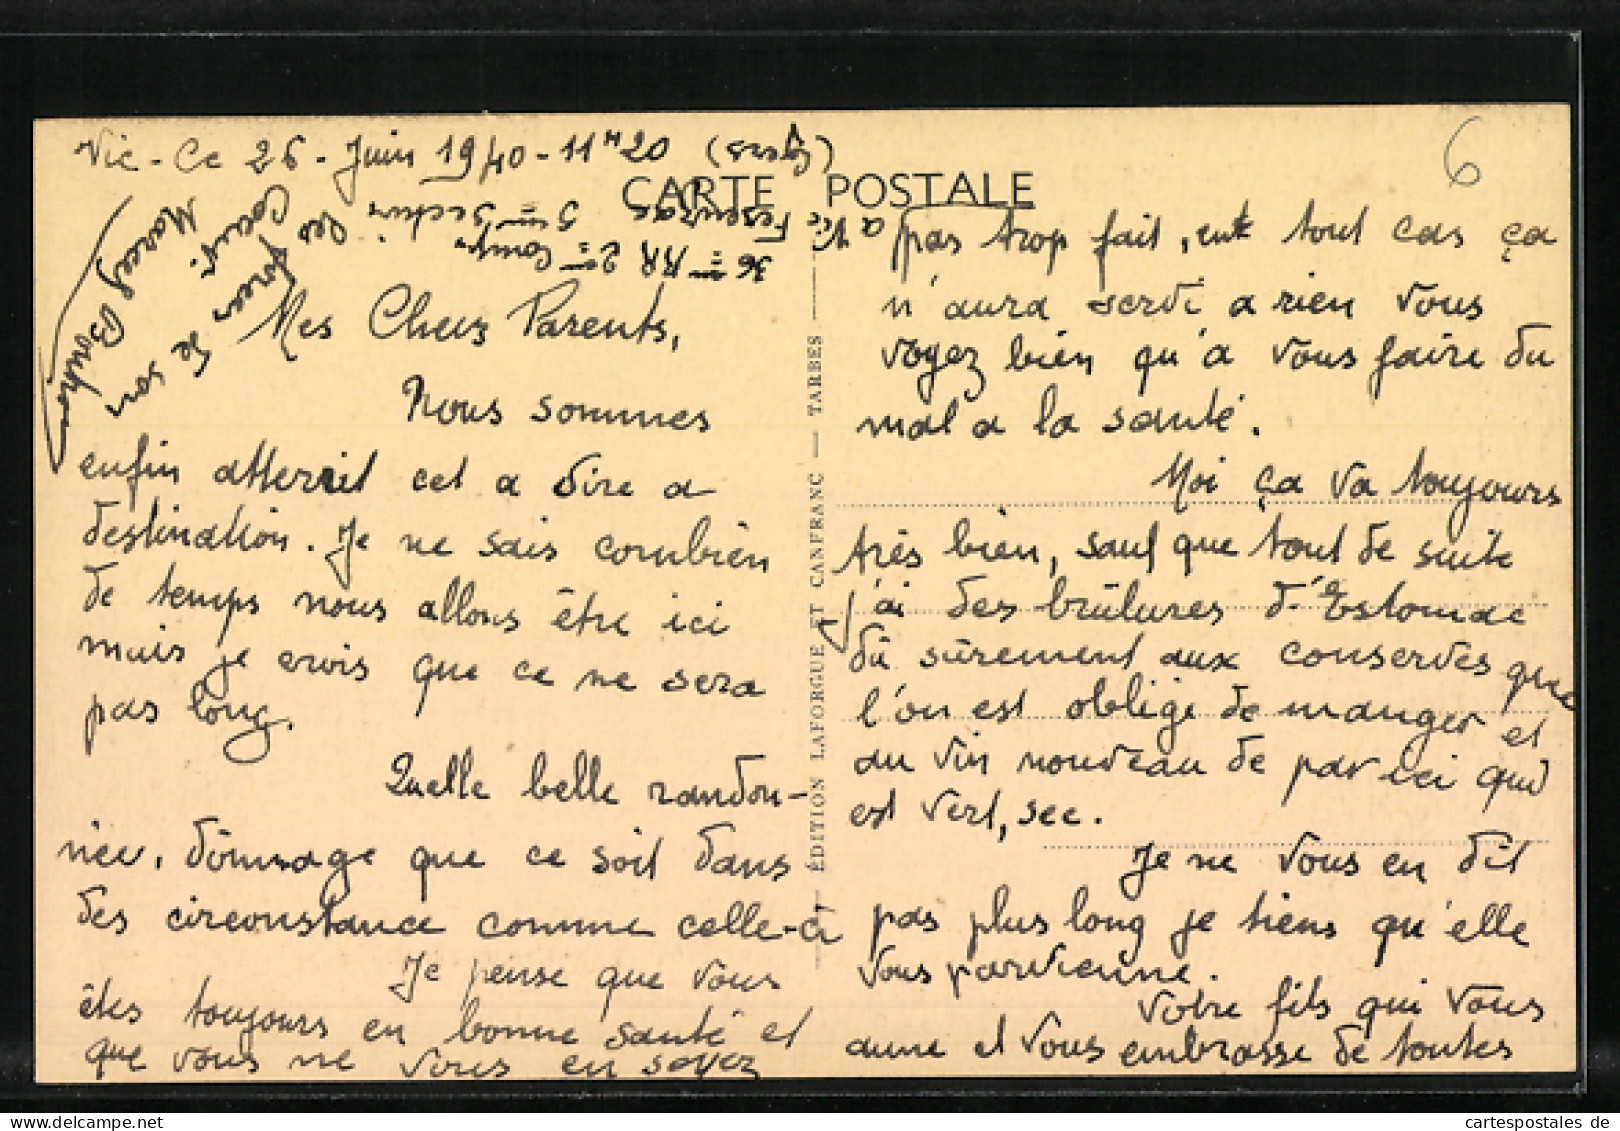 Vic-Ce 26-Juin 1940-11H20 (Gers)
6
CARTE POSTALE
36 RR 2 Comp
Fezensac 5 Secteur
a Vic
forces de son
Coeur. les
Marcel
Mes Chers Parents,
Nous sommes
enfin atterrit cet a dire a
destination. Je ne sais combien
de temps nous allons être ici
mais je crois que ce ne sera
pas long.
Quelle belle randon-
née, dommage que ce soit dans
des circonstance comme celle-ci
Je pense que vous
êtes toujours en bonne santé et
que vous ne vous en soyez
ÉDITION LAFORGUE ET CANFRANC — TARBES
pas trop fait, en tout cas ça
n'aura servi a rien vous
voyez bien qu'a vous faire du
mal a la santé.
Moi ça va toujours
très bien, sauf que tout de suite
j'ai des brûlures d'Estomac
dû sûrement aux conserves que
l'on est obligé de manger et
au vin nouveau de par ici qui
est vert, sec.
Je ne vous en dit
pas plus long je tiens qu'elle
vous parvienne.
Votre fils qui vous
aime et vous embrasse de toutes
cartespostales de